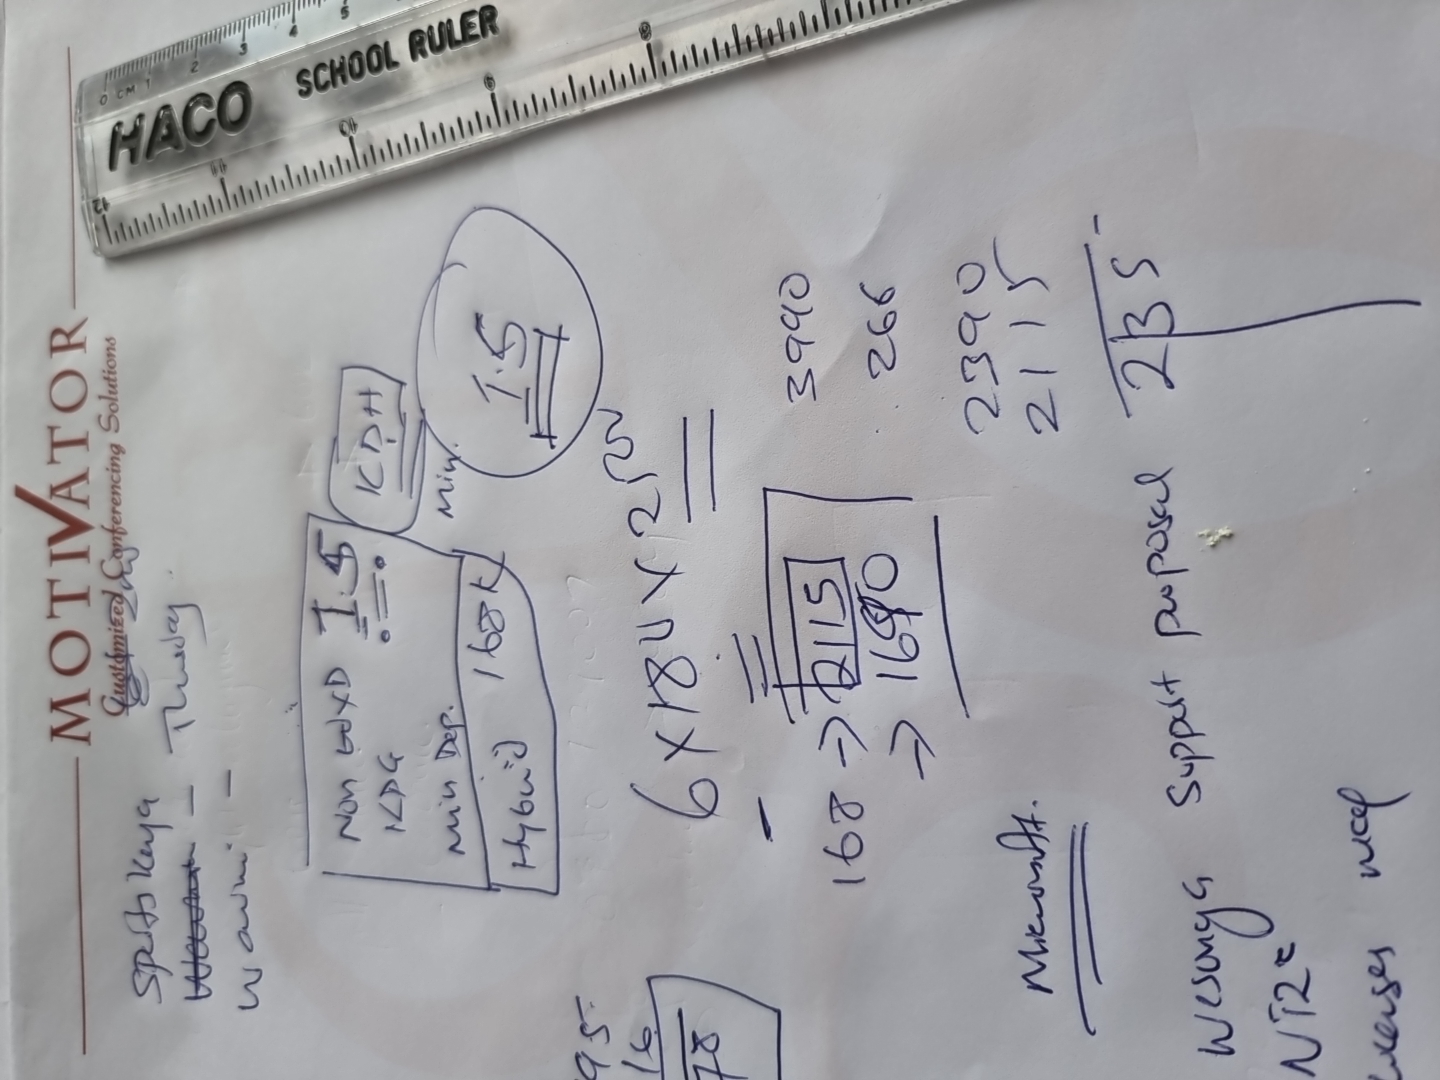 MOTIVATOR
Customized Conferencing Solutions
Sports Kenya
- Thursday
-
Non
1.5
KDG
Min Dep.
Hybrid 168K
KDH
Min.
1.5
95
16
78
6 x 180 x
168 → 2115
→ 1690
3990
266
2390
2115
235
Microsoft.
Wesonga Support proposal
HACO
SCHOOL RULER
0 CM 1
2
3
4
5